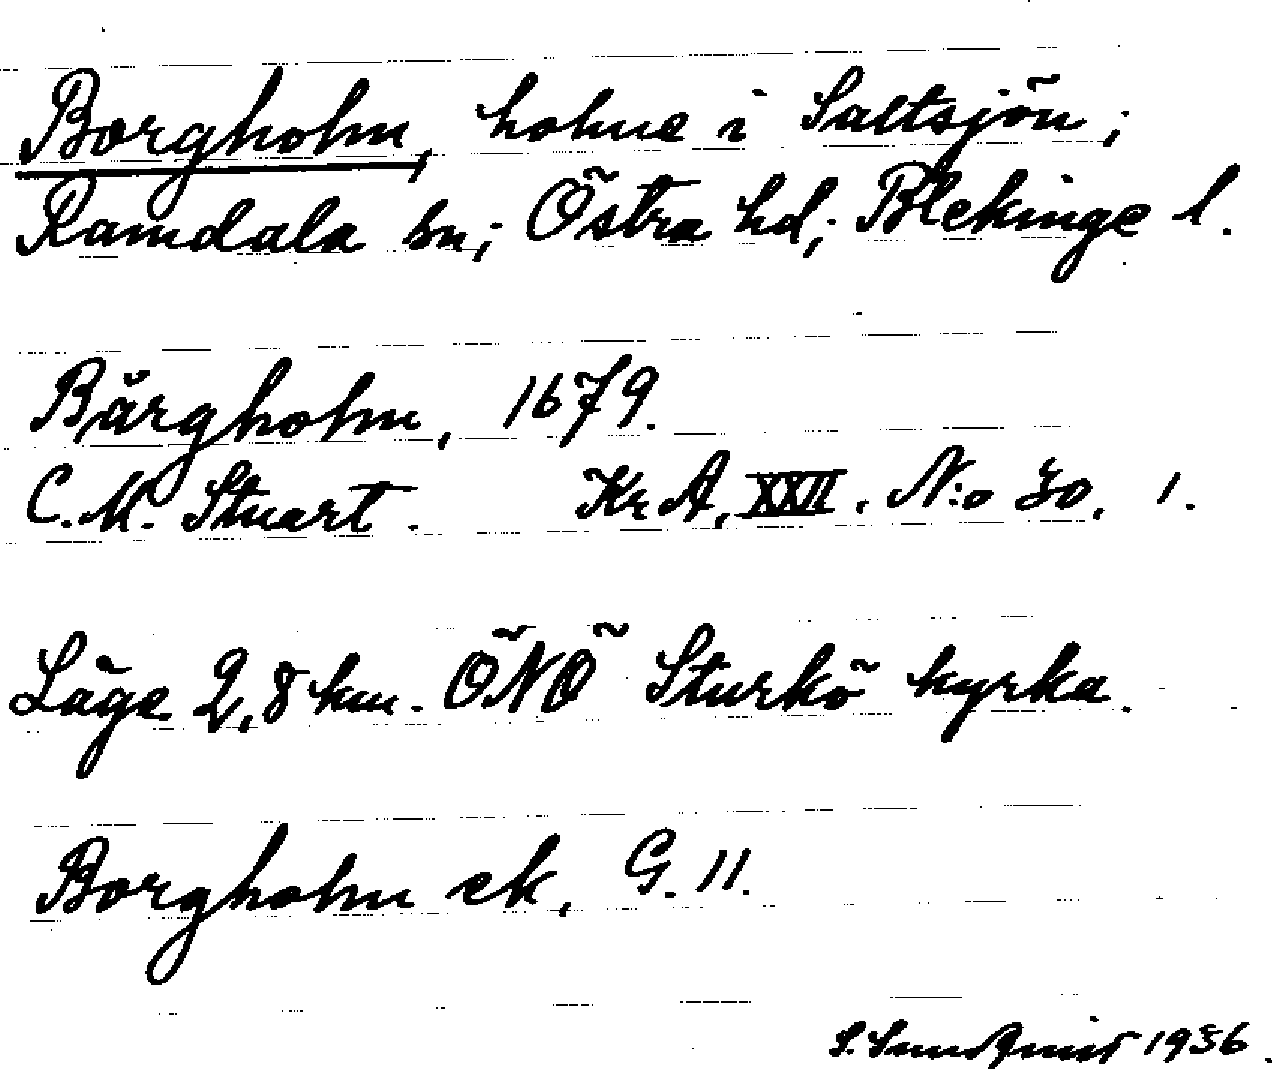 Borgholm, holme i Saltsjön;
Ramdala sn; Östra hd; Blekinge l.
Bårgholm, 1679.
C.M. Stuart. Kr A, XXII. N:o 30, 1.
Läge 2,8 km. ÖNÖ Sturkö kyrka.
Borgholm ek, G. 11.
S. Sundquist 1936.